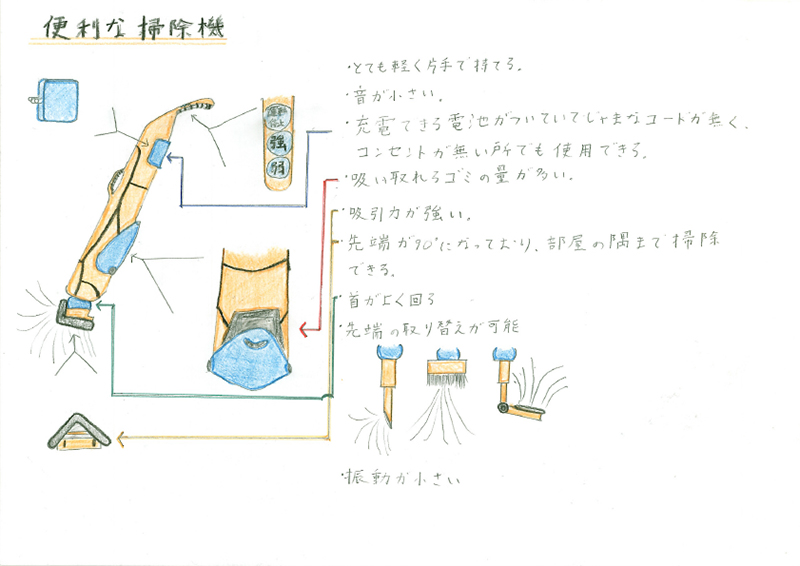 便利な掃除機
・とても軽く片手で持てる。
・音が小さい。
・充電できる電池がついていてじゃまなコードが無く、
コンセントが無い所でも使用できる。
・吸い取れるゴミの量が多い。
・吸引力が強い。
・先端が90°になっており、部屋の隅まで掃除
できる。
・首がよく回る
・先端の取り替えが可能
・振動が小さい
強
弱